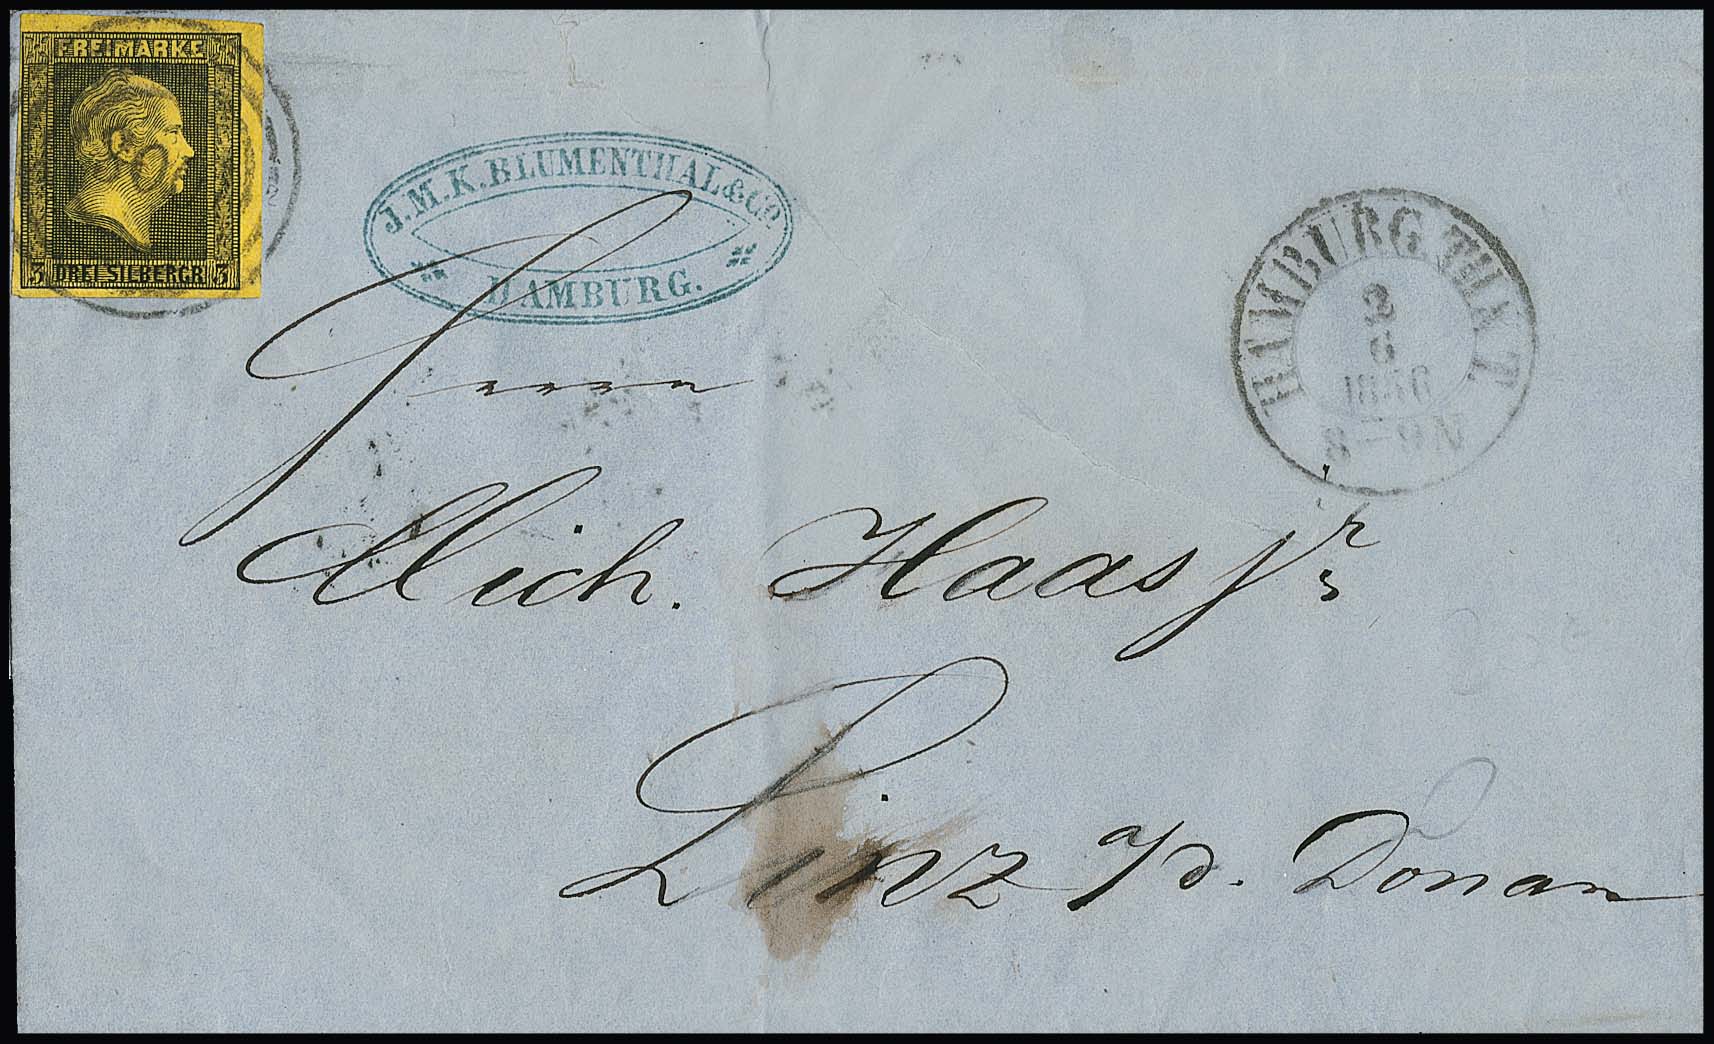 FREIMARKE
3 DREI SILBERGR. 3
J. M. K. BLUMENTHAL & Co.
HAMBURG.
HAMBURG. TH. & T.
Herrn
Mich. Haas jr.
Linz a/d. Donau